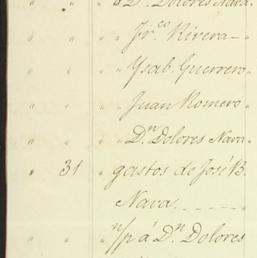 " " " á D.ⁿ Dolores Nava.
" " " Fr.ᶜᵒ Rivera -
" " " Ysab.ˡ Guerrero
" " " Juan Romero
" " " D.ⁿ Dolores Nava
" 31 gastos de José B.
Nava.
" " n/p á D.ⁿ Dolores